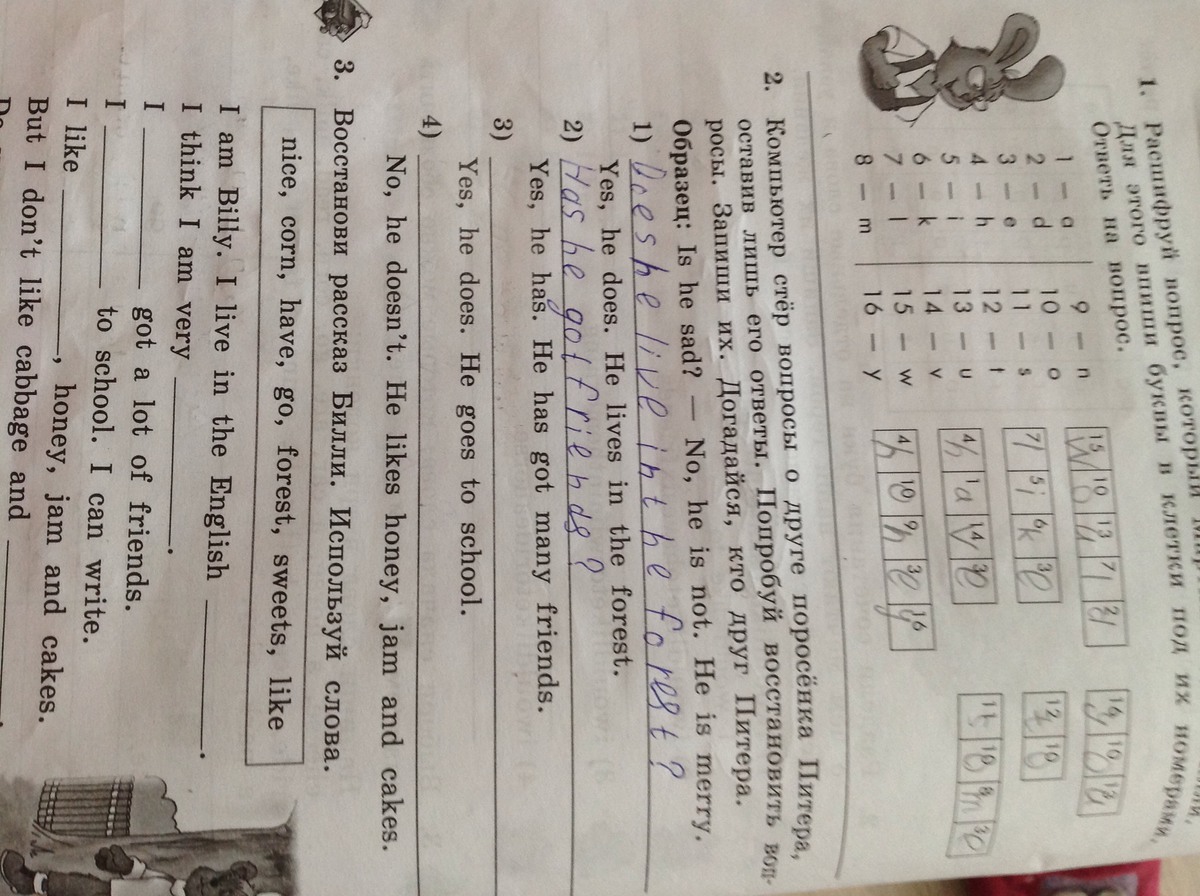 1. Расшифруй вопрос, который
Для этого впиши буквы в клетки под их номерами.
Ответь на вопрос.
1 — a 9 — n
2 — d 10 — o
3 — e 11 — s
4 — h 12 — t
5 — i 13 — u
6 — k 14 — v
7 — l 15 — w
8 — m 16 — y
15 10 13 7 2 16 10 13
7 5 6 3 12 10
4 1 14 3 11 10 8 3
4 10 9 3 16
2. Компьютер стёр вопросы о друге поросёнка Питера,
оставив лишь его ответы. Попробуй восстановить воп-
росы. Запиши их. Догадайся, кто друг Питера.
Образец: Is he sad? — No, he is not. He is merry.
1) Does he live in the forest?
Yes, he does. He lives in the forest.
2) Has he got friends?
Yes, he has. He has got many friends.
3)
Yes, he does. He goes to school.
4)
No, he doesn't. He likes honey, jam and cakes.
3. Восстанови рассказ Билли. Используй слова.
nice, corn, have, go, forest, sweets, like
I am Billy. I live in the English ______.
I think I am very ______.
I ______ got a lot of friends.
I ______ to school. I can write.
I like ______, honey, jam and cakes.
But I don't like cabbage and ______.